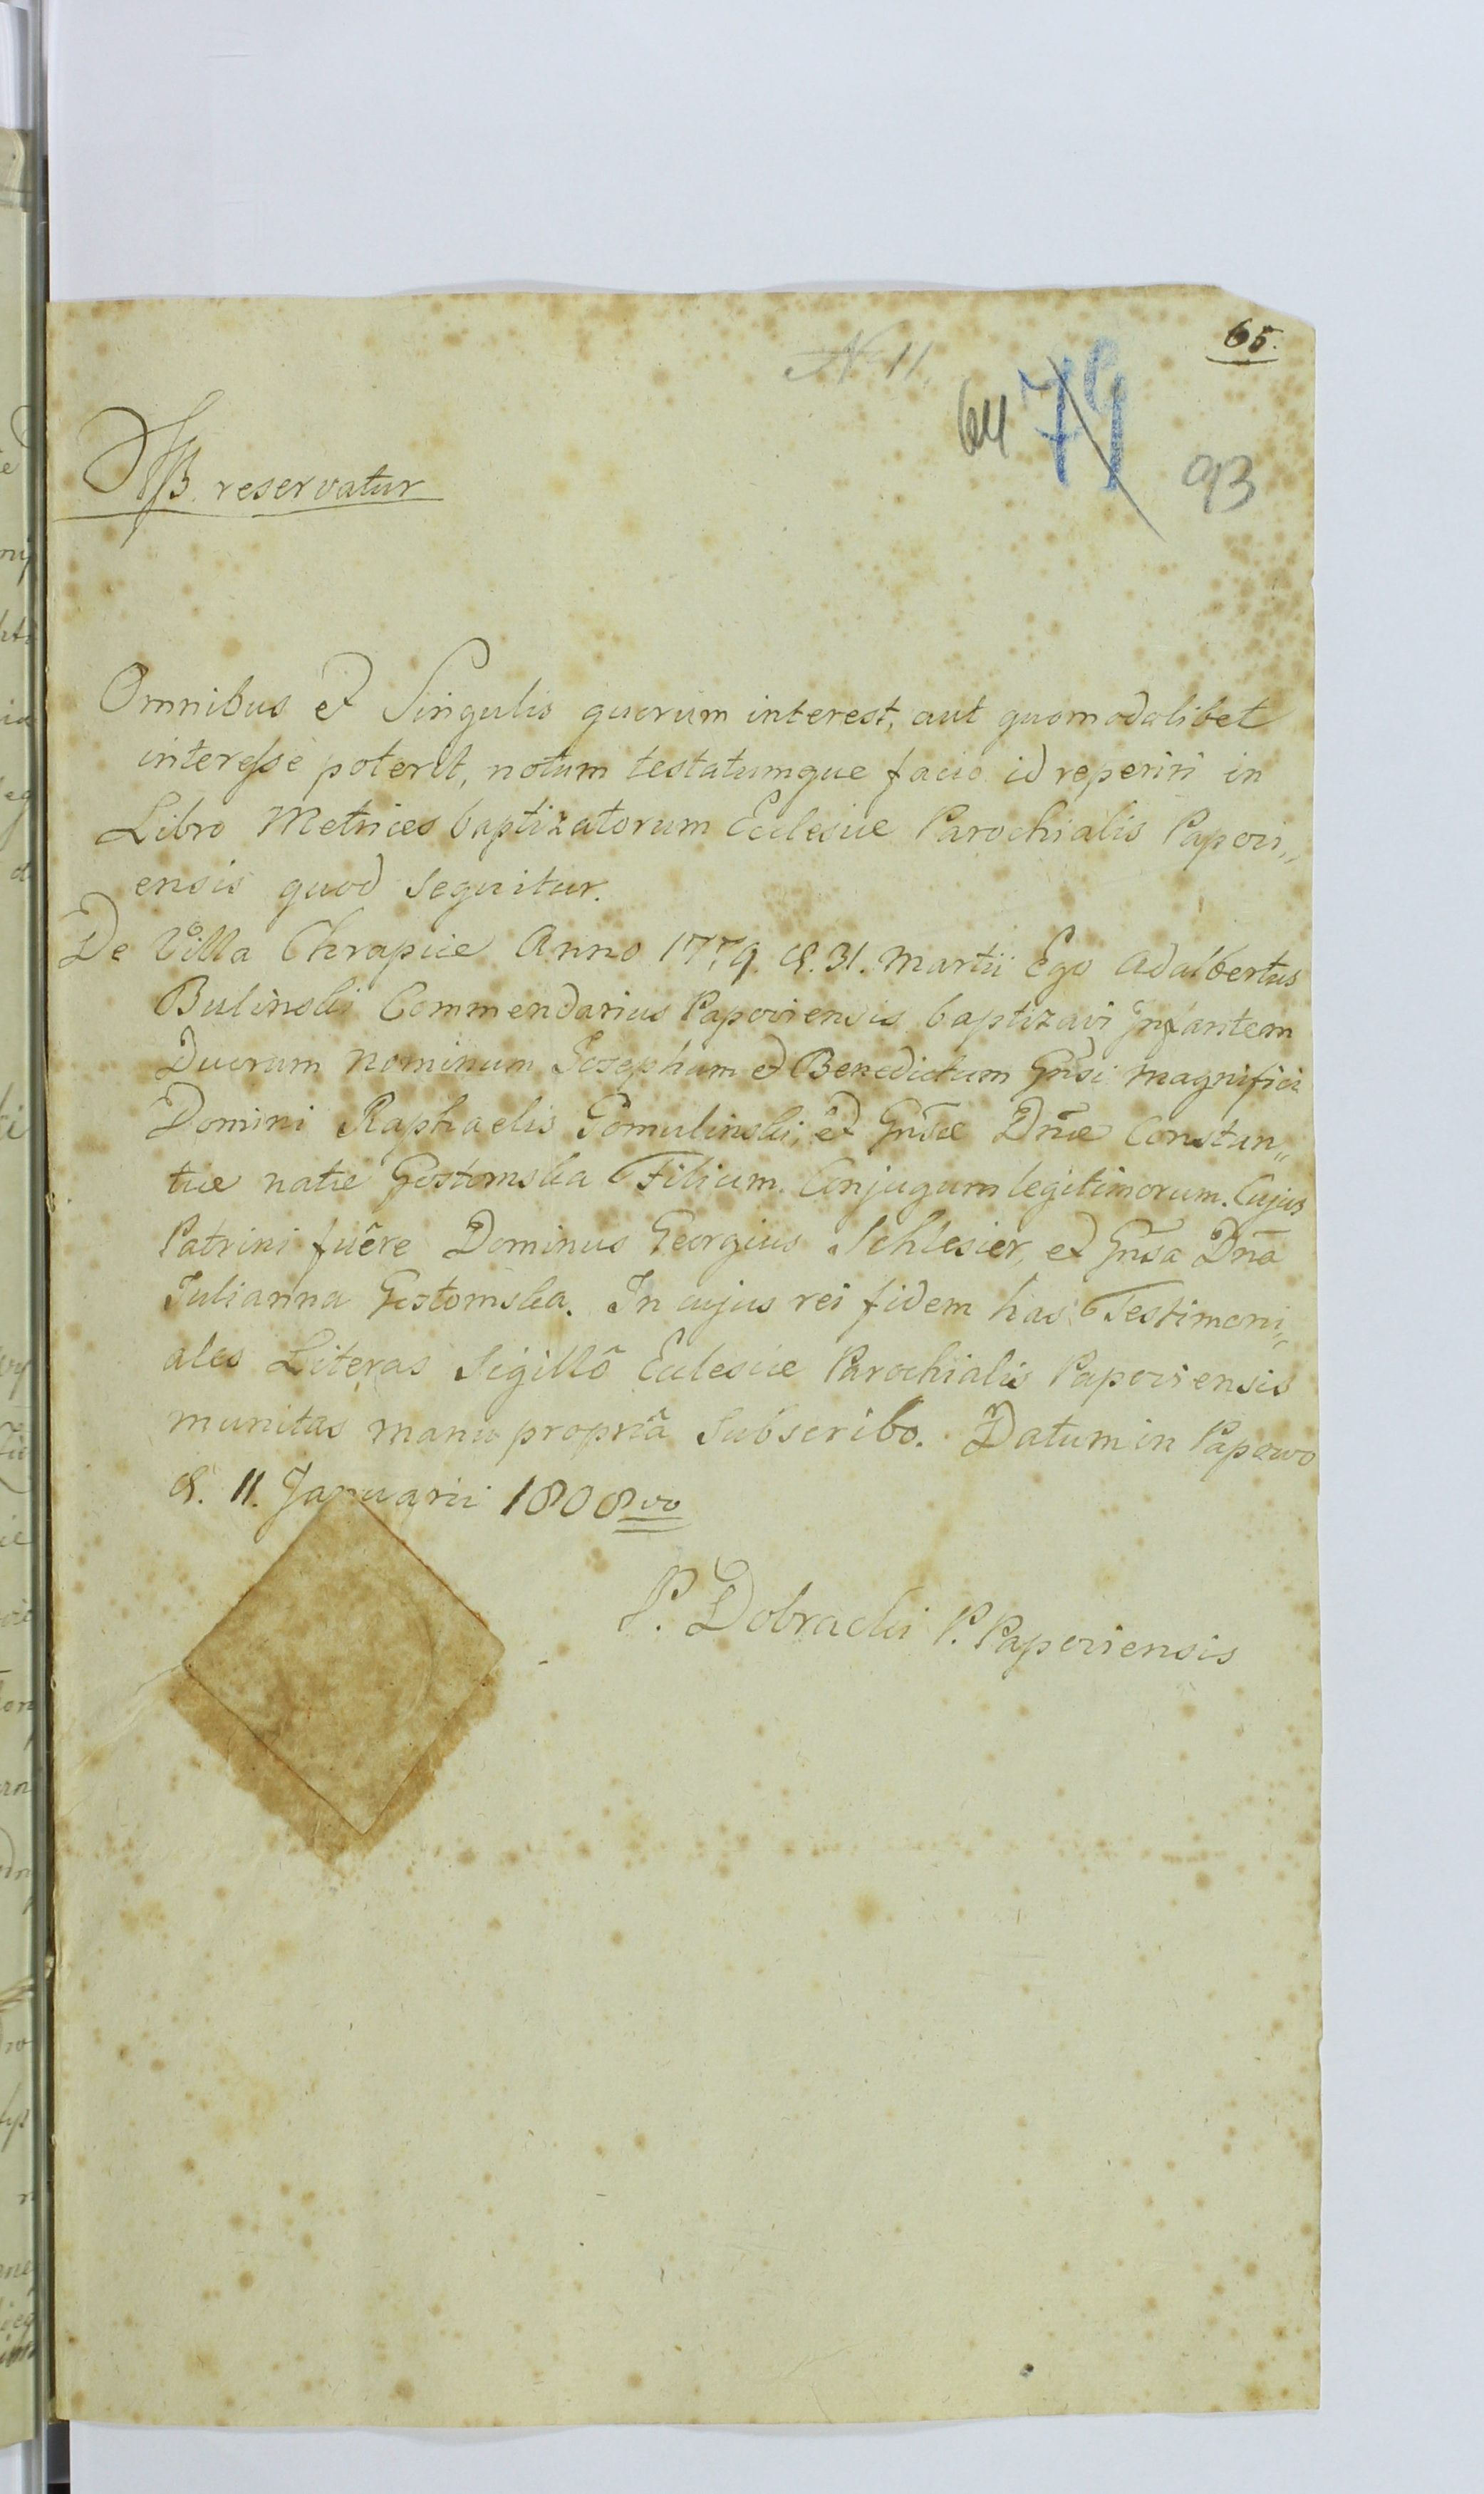 65.
N 11.
64 79
93
NB. reservatur
Omnibus et Singulis quorum interest, aut quomodolibet
interesse poterit, notum testatumque facio id reperiri in
Libro Metrices baptizatorum Ecclesiæ Parochialis Papovi„
ensis quod sequitur.
De Villa Chrapice Anno 1779. d. 31. Martii Ego Adalbertus
Bulinski Commendarius Papoviensis baptizavi Infantem
Duorum Nominum Josephum et Benedictum Gñsi Magnifici
Domini Raphaelis Gomulinski, et Gñsæ Dñæ Constan„
tiæ natæ Gostomska Filium. Conjugum legitimorum. Cujus
Patrini fuêre Dominus Georgius Schlesier, et Gñsa Dña
Julianna Gostomska. In cujus rei fidem has Testimoni„
ales Literas Sigillô Ecclesiæ Parochialis Papoviensis
munitas manu propriâ Subscribo. Datum in Papowo
d. 11. Januarii 1808vo
P. Dobracki P. Papoviensis